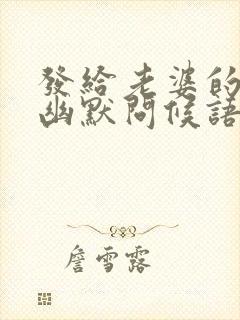 發給老婆的
幽默問候語
詹雪露